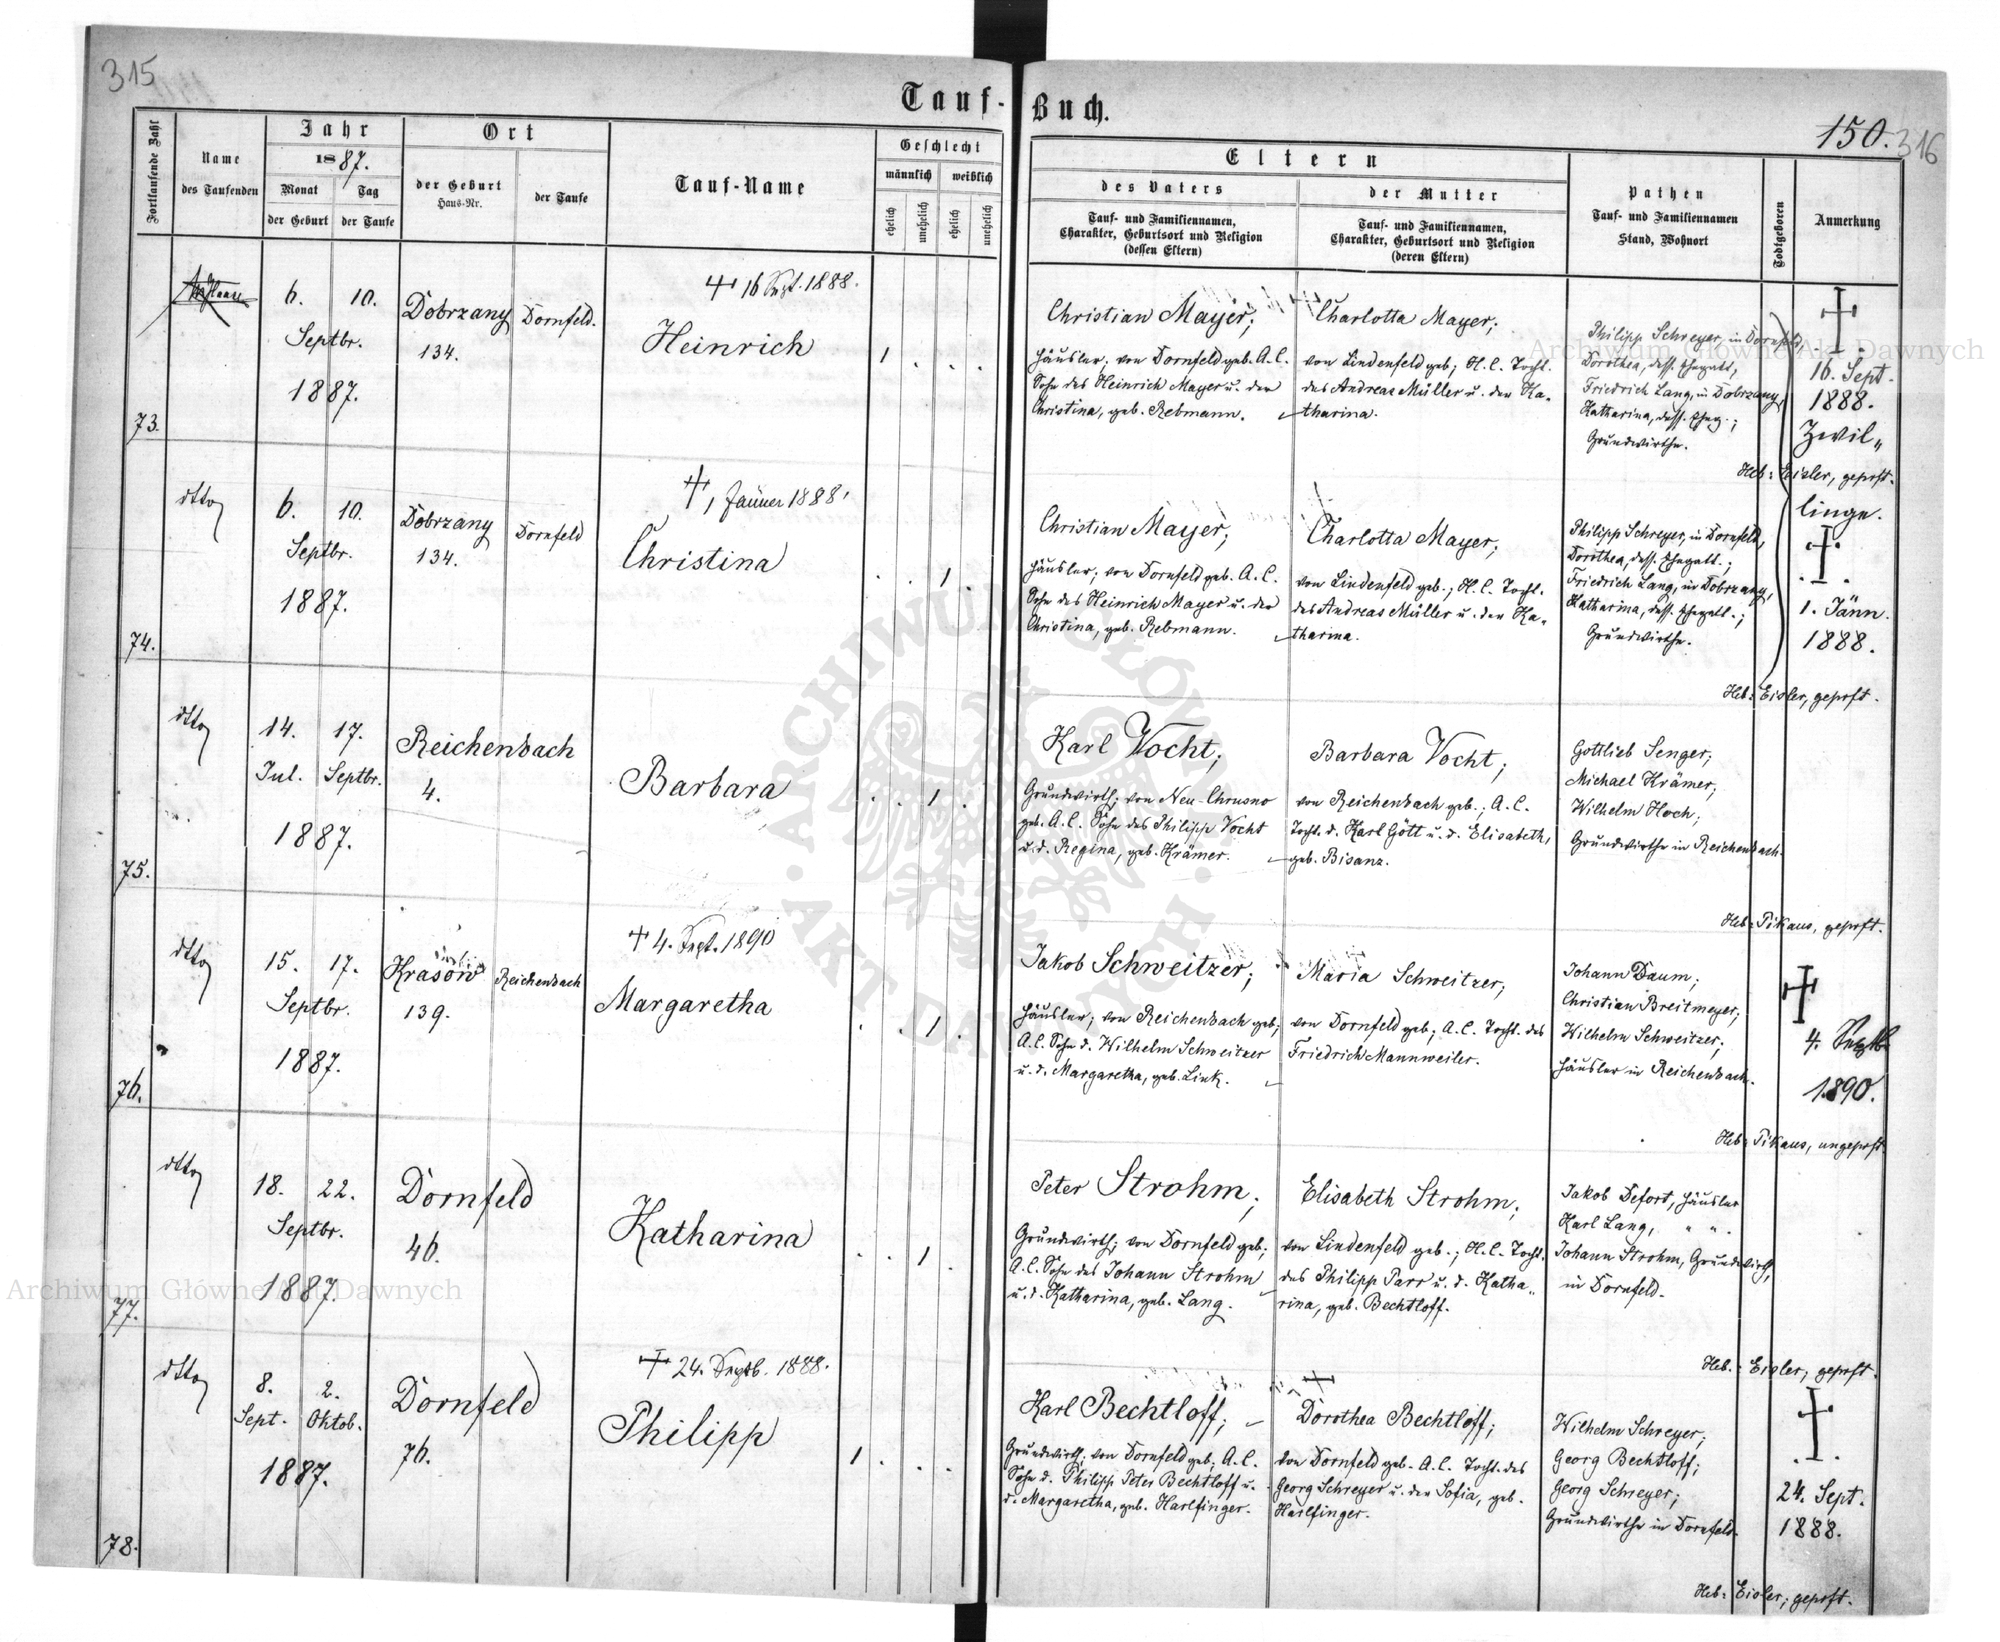 315
Tauf-Buch.
150. 316
Fortlaufende Zahl
Name
des Taufenden
Jahr
1887.
Monat
der Geburt
Tag
der Taufe
Ort
der Geburt
Haus-Nr.
der Taufe
Tauf-Name
Geschlecht
männlich weiblich
ehelich unehelich ehelich unehelich
Eltern
des Vaters
Tauf- und Familiennamen,
Charakter, Geburtsort und Religion
(dessen Eltern)
der Mutter
Tauf- und Familiennamen,
Charakter, Geburtsort und Religion
(deren Eltern)
Pathen
Tauf- und Familiennamen
Stand, Wohnort
Todtgeboren
Anmerkung
73.
6. 10.
Septbr.
1887.
Dobrzany
134.
Dornfeld.
† 16 Sept. 1888.
Heinrich
1 . . .
Christian Mayer;
Häusler; von Dornfeld geb. A. C.
Sohn des Heinrich Mayer u. der
Christina, geb. Rebmann.
Charlotta Mayer;
von Lindenfeld geb; H. C. Tocht.
des Andreas Müller u. der Ka-
tharina.
Philipp Schreyer, in Dornfeld,
Dorothea, dess. Ehegatt,
Friedrich Lang, in Dobrzany,
Katharina, dess. Eheg.;
Grundwirthe.
†
16. Sept.
1888.
Zwil„
Heb: Eisler, geprft.
74.
dtto
6. 10.
Septbr.
1887.
Dobrzany
134.
Dornfeld
† 1 Jänner 1888.
Christina
. . 1 .
Christian Mayer;
Häusler; von Dornfeld geb. A. C.
Sohn des Heinrich Mayer u. der
Christina, geb. Rebmann.
Charlotta Mayer;
von Lindenfeld geb.; H. C. Tocht.
des Andreas Müller u. der Ka„
tharina.
Philipp Schreyer, in Dornfeld,
Dorothea, dess. Ehegatt.;
Friedrich Lang, in Dobrzany,
Katharina, dess. Ehegatt.;
Grundwirthe.
linge.
†
1. Jänn.
1888.
Heb: Eisler, geprft.
75.
dtto
14. 17.
Jul. Septbr.
1887.
Reichenbach
4.
Barbara
. . 1 .
Karl Vocht;
Grundwirth; von Neu-Chrusno
geb. A. C. Sohn des Philipp Vocht
u. d. Regina, geb. Krämer.
Barbara Vocht;
von Reichenbach geb.; A. C.
Tocht. d. Karl Gött u. d. Elisabeth,
geb. Bisanz.
Gottlieb Senger;
Michael Krämer;
Wilhelm Hoch;
Grundwirthe in Reichenbach.
Heb: Pikaus, geprft.
76.
dtto
15. 17.
Septbr.
1887.
Krasów
139.
Reichenbach
† 4. Sept. 1890
Margaretha
. . 1 .
Jakob Schweitzer;
Häusler; von Reichenbach geb;
A. C. Sohn d. Wilhelm Schweitzer
u. d. Margaretha, geb. Link.
Maria Schweitzer;
von Dornfeld geb; A. C. Tocht. des
Friedrich Mannweiler.
Johann Daum;
Christian Breitmeyer;
Wilhelm Schweitzer;
Häusler in Reichenbach.
†
4. Septb
1890.
Heb: Pikaus, ungeprft.
77.
dtto
18. 22.
Septbr.
1887.
Dornfeld
46.
Katharina
. . 1 .
Peter Strohm;
Grundwirth; von Dornfeld geb;
A. C. Sohn des Johann Strohm
u. d. Katharina, geb. Lang.
Elisabeth Strohm;
von Lindenfeld geb.; H. C. Tocht.
des Philipp Parr u. d. Katha„
rina, geb. Bechtloff.
Jakob Defort, Häusler
Karl Lang, " ".
Johann Strohm, Grundwirth,
in Dornfeld.
Heb.: Eisler, geprft.
78.
dtto
8. 2.
Sept. Oktob.
1887.
Dornfeld
76.
† 24. Septb. 1888.
Philipp
1 . . .
Karl Bechtloff;
Grundwirth; von Dornfeld geb; A. C.
Sohn d. Philipp Peter Bechtloff u.
d. Margaretha, geb. Harlfinger.
†
Dorothea Bechtloff;
von Dornfeld geb. A. C. Tocht. des
Georg Schreyer u. der Sofia, geb.
Harlfinger.
Wilhelm Schreyer;
Georg Bechtloff;
Georg Schreyer;
Grundwirthe in Dornfeld.
†
24. Sept.
1888.
Heb: Eisler; geprft.
Archiwum Główne Akt Dawnych
Archiwum Główne Akt Dawnych
ARCHIWUM GŁÓWNE · AKT DAWNYCH ·